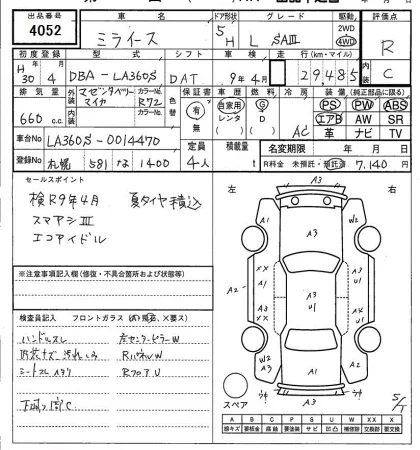 出品番号 車名 ドア形状 グレード 駆動 評価点
4052 ミライース 5 H L SAⅢ 2WD 4WD R
初度登録 型式 シフト 車検 走行(km・マイル) C
H30 4 DBA-LA360S DAT 9年4月 29,485
排気量 外装 マゼンタベリーマイカ カラーNo. R72 色替 保証書 車歴 燃料 装備(純正部品に限る)
660 c.c. 内装 カラーNo. 有 無 自家用 レンタ G D PS PW ABS
エアB AW SR
AC 革 ナビ TV
車台No LA360S-0014470 定員 積載量 名変期限 年 月 日
登録No 札幌 581 な 1400 4人 t R料金 未預託・預託済 7,140円
セールスポイント
検R9年4月 夏タイヤ積込
スマアシⅢ
エコアイドル
左 右
※注意事項記入欄(修復・不具合箇所および状態等)
検査員記入 フロントガラス
ハンドルスレ 左センターピラーW
内装キズ 汚れしみ RパネルW
シートスレ RフロアU
下廻り C
A3
A1 A2
W2
A3
XX XX
A2 A1 A3 U1 A3 U1
W2 A3 A1 A2
A3
スペア
5/1
A B C P S U W X XX
線キズ 要板金 腐蝕 要塗装 サビ 凹凸 補修跡 要交換 交換跡